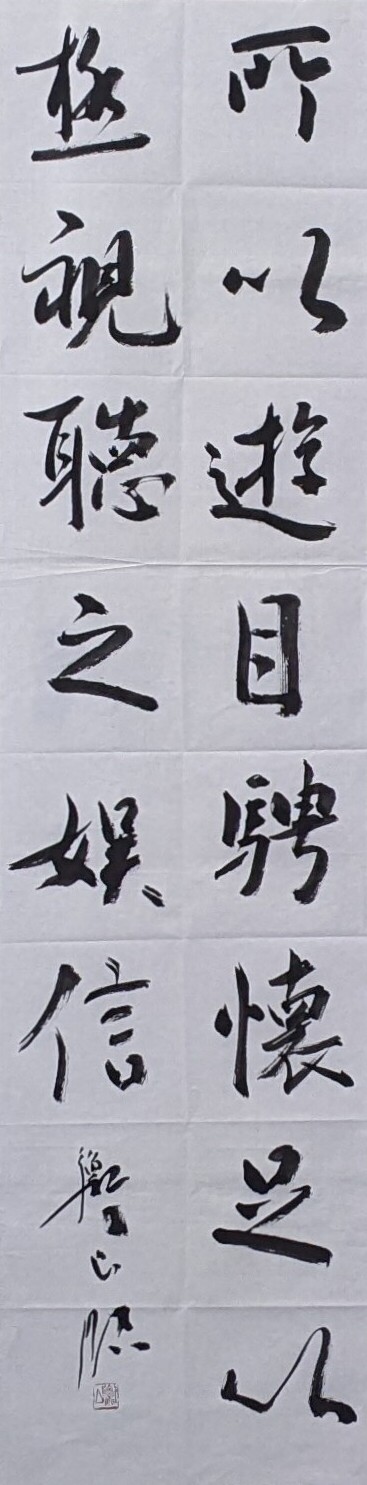 所以遊目騁懷足以
極視聽之娛信
臨